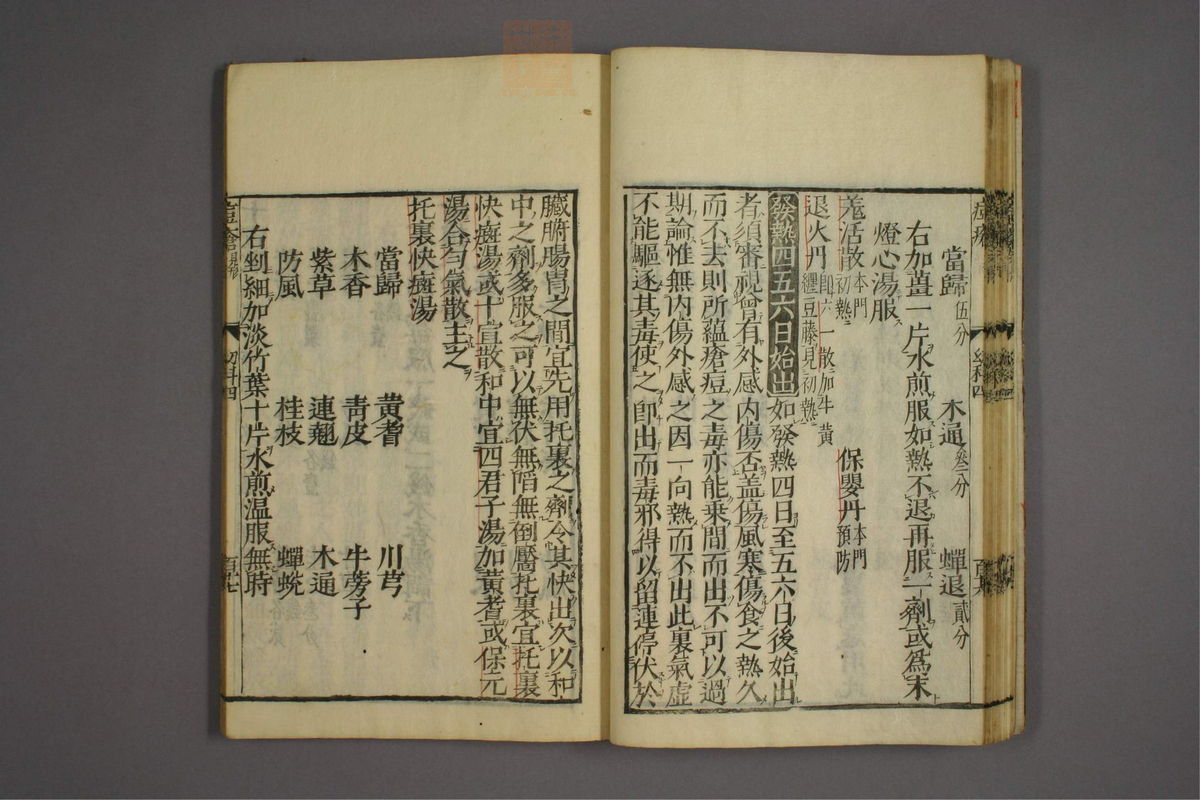 當歸伍分 木通叄分 蟬退貳分
右加薑一片水煎服如熱不退再服一劑或爲末
燈心湯服
羗活散本門初熱 保嬰丹本門預防
退火丹卽六一散加牛黃纏豆藤見初熱
發熱四五六日始出如發熱四日至五六日後始出
者須審視曾有外感內傷否盖傷風寒傷食之熱久
而不去則所蘊瘡痘之毒亦能乗間而出不可以過
期論惟無內傷外感之因一向熱而不出此裏氣虛
不能驅逐其毒使之卽出而毒邪得以留連停伏於
臟腑腸胃之間宜先用托裏之劑令其快出次以和
中之劑多服之可以無伏無䧟無倒靨托裏宜托裏
快癍湯或十宣散和中宜四君子湯加黃耆或保元
湯合勻氣散主之
托裏快癍湯
當歸 黃耆 川芎
木香 靑皮 牛蒡子
紫草 連翹 木通
防風 桂枝 蟬蛻
右剉細加淡竹葉十片水煎温服無時
幼科四